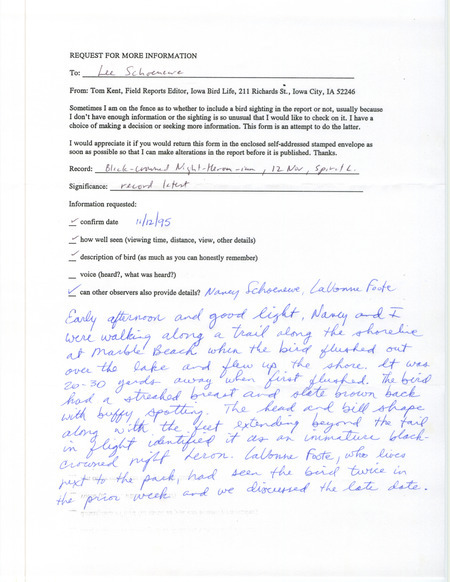 REQUEST FOR MORE INFORMATION
To: Lee Schoenewe
From: Tom Kent, Field Reports Editor, Iowa Bird Life, 211 Richards St., Iowa City, IA 52246
Sometimes I am on the fence as to whether to include a bird sighting in the report or not, usually because
I don't have enough information or the sighting is so unusual that I would like to check on it. I have a
choice of making a decision or seeking more information. This form is an attempt to do the latter.
I would appreciate it if you would return this form in the enclosed self-addressed stamped envelope as
soon as possible so that I can make alterations in the report before it is published. Thanks.
Record: Black-crowned Night-Heron-imm, 12 Nov, Spirit L.
Significance: record latest
Information requested:
✓ confirm date 11/12/95
✓ how well seen (viewing time, distance, view, other details)
✓ description of bird (as much as you can honestly remember)
voice (heard?, what was heard?)
✓ can other observers also provide details? Nancy Schoenewe, LaVonne Foote
Early afternoon and good light, Nancy and I
were walking along a trail along the shoreline
at Marble Beach when the bird flushed out
over the lake and flew up the shore. It was
20-30 yards away when first flushed. The bird
had a streaked breast and slate brown back
with buffy spotting. The head and bill shape
along with the feet extending beyond the tail
in flight identified it as an immature black-
crowned night heron. LaVonne Foote, who lives
next to the park, had seen the bird twice in
the prior week and we discussed the late date.